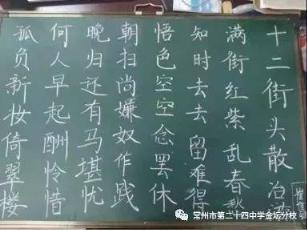 十二街头散冶游
满街红紫乱春秋
知时去去留难得
悟色空空念罢休
朝扫尚嫌奴作践
晚归还有马堪忧
何人早起酬怜惜
孤负新妆倚翠楼
常州市第二十四中学金坛分校